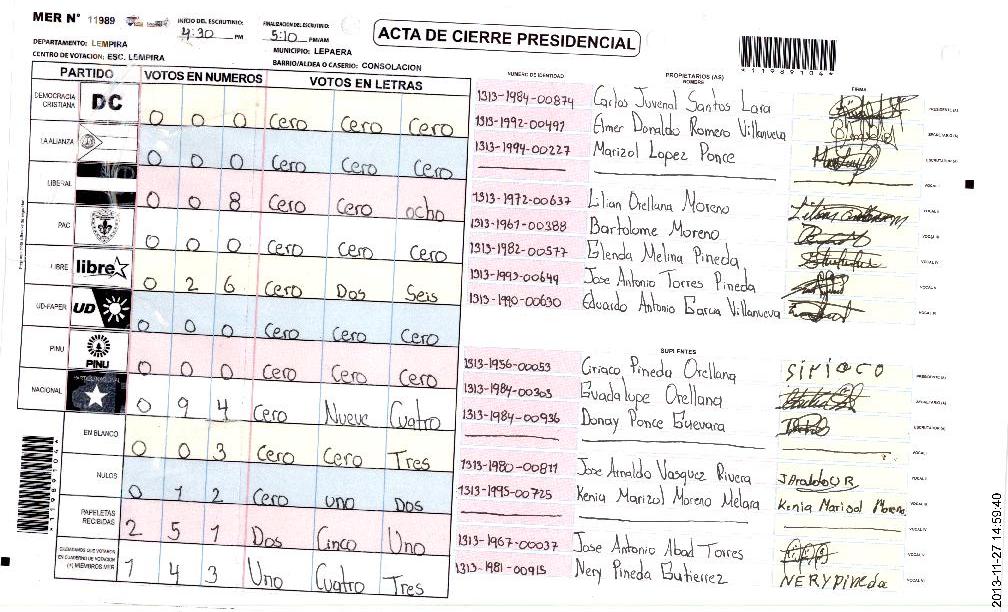 MER N° 11989
INICIO DEL ESCRUTINIO: 4:30 PM
FINALIZACION DEL ESCRUTINIO: 5:10 PM/AM
ACTA DE CIERRE PRESIDENCIAL
*11989104*
DEPARTAMENTO: LEMPIRA
MUNICIPIO: LEPAERA
CENTRO DE VOTACION: ESC. LEMPIRA
BARRIO/ALDEA O CASERIO: CONSOLACION
PARTIDO VOTOS EN NUMEROS VOTOS EN LETRAS
DEMOCRACIA CRISTIANA DC 0 0 0 Cero Cero Cero
LA ALIANZA 0 0 0 Cero Cero Cero
LIBERAL 0 0 8 Cero Cero ocho
PAC 0 0 0 Cero Cero Cero
LIBRE libre 0 2 6 Cero Dos Seis
UD-FAPER UD 0 0 0 Cero Cero Cero
PINU PINU 0 0 0 Cero Cero Cero
NACIONAL 0 9 4 Cero Nueve Cuatro
EN BLANCO 0 0 3 Cero Cero Tres
NULOS 0 1 2 Cero uno Dos
PAPELETAS RECIBIDAS 2 5 1 Dos Cinco Uno
CIUDADANOS QUE VOTARON EN CUADERNO DE VOTACION (+) MIEMBROS MER 1 4 3 Uno Cuatro Tres
*11989104*
NUMERO DE IDENTIDAD PROPIETARIOS (AS) NOMBRE FIRMAS
1313-1984-00874 Carlos Juvenal Santos Lara PRESIDENTE(A)
1313-1992-00497 Elmer Donaldo Romero Villanueva SECRETARIO(A)
1313-1994-00227 Marizol Lopez Ponce ESCRUTADOR(A)
VOCAL I
1313-1972-00637 Lilian Orellana Moreno VOCAL II
1313-1967-00388 Bartolome Moreno VOCAL III
1313-1982-00577 Glenda Melina Pineda VOCAL IV
1313-1993-00649 Jose Antonio Torres Pineda VOCAL V
1313-1990-00630 Eduardo Antonio Garcia Villanueva VOCAL VI
SUPLENTES
1313-1956-00053 Ciriaco Pineda Orellana SIRIACO PRESIDENTE(A)
1313-1984-00303 Guadalupe Orellana SECRETARIO(A)
1313-1984-00936 Donay Ponce Guevara ESCRUTADOR(A)
VOCAL I
1313-1980-00811 Jose Arnaldo Vasquez Rivera VOCAL II
1313-1995-00725 Kenia Marizol Moreno Melara Kenia Marisol Moreno VOCAL III
VOCAL IV
1313-1967-00037 Jose Antonio Abad Torres VOCAL V
1313-1981-00915 Nery Pineda Gutierrez NERY PINEDA VOCAL VI
2013-11-27 14:59:40